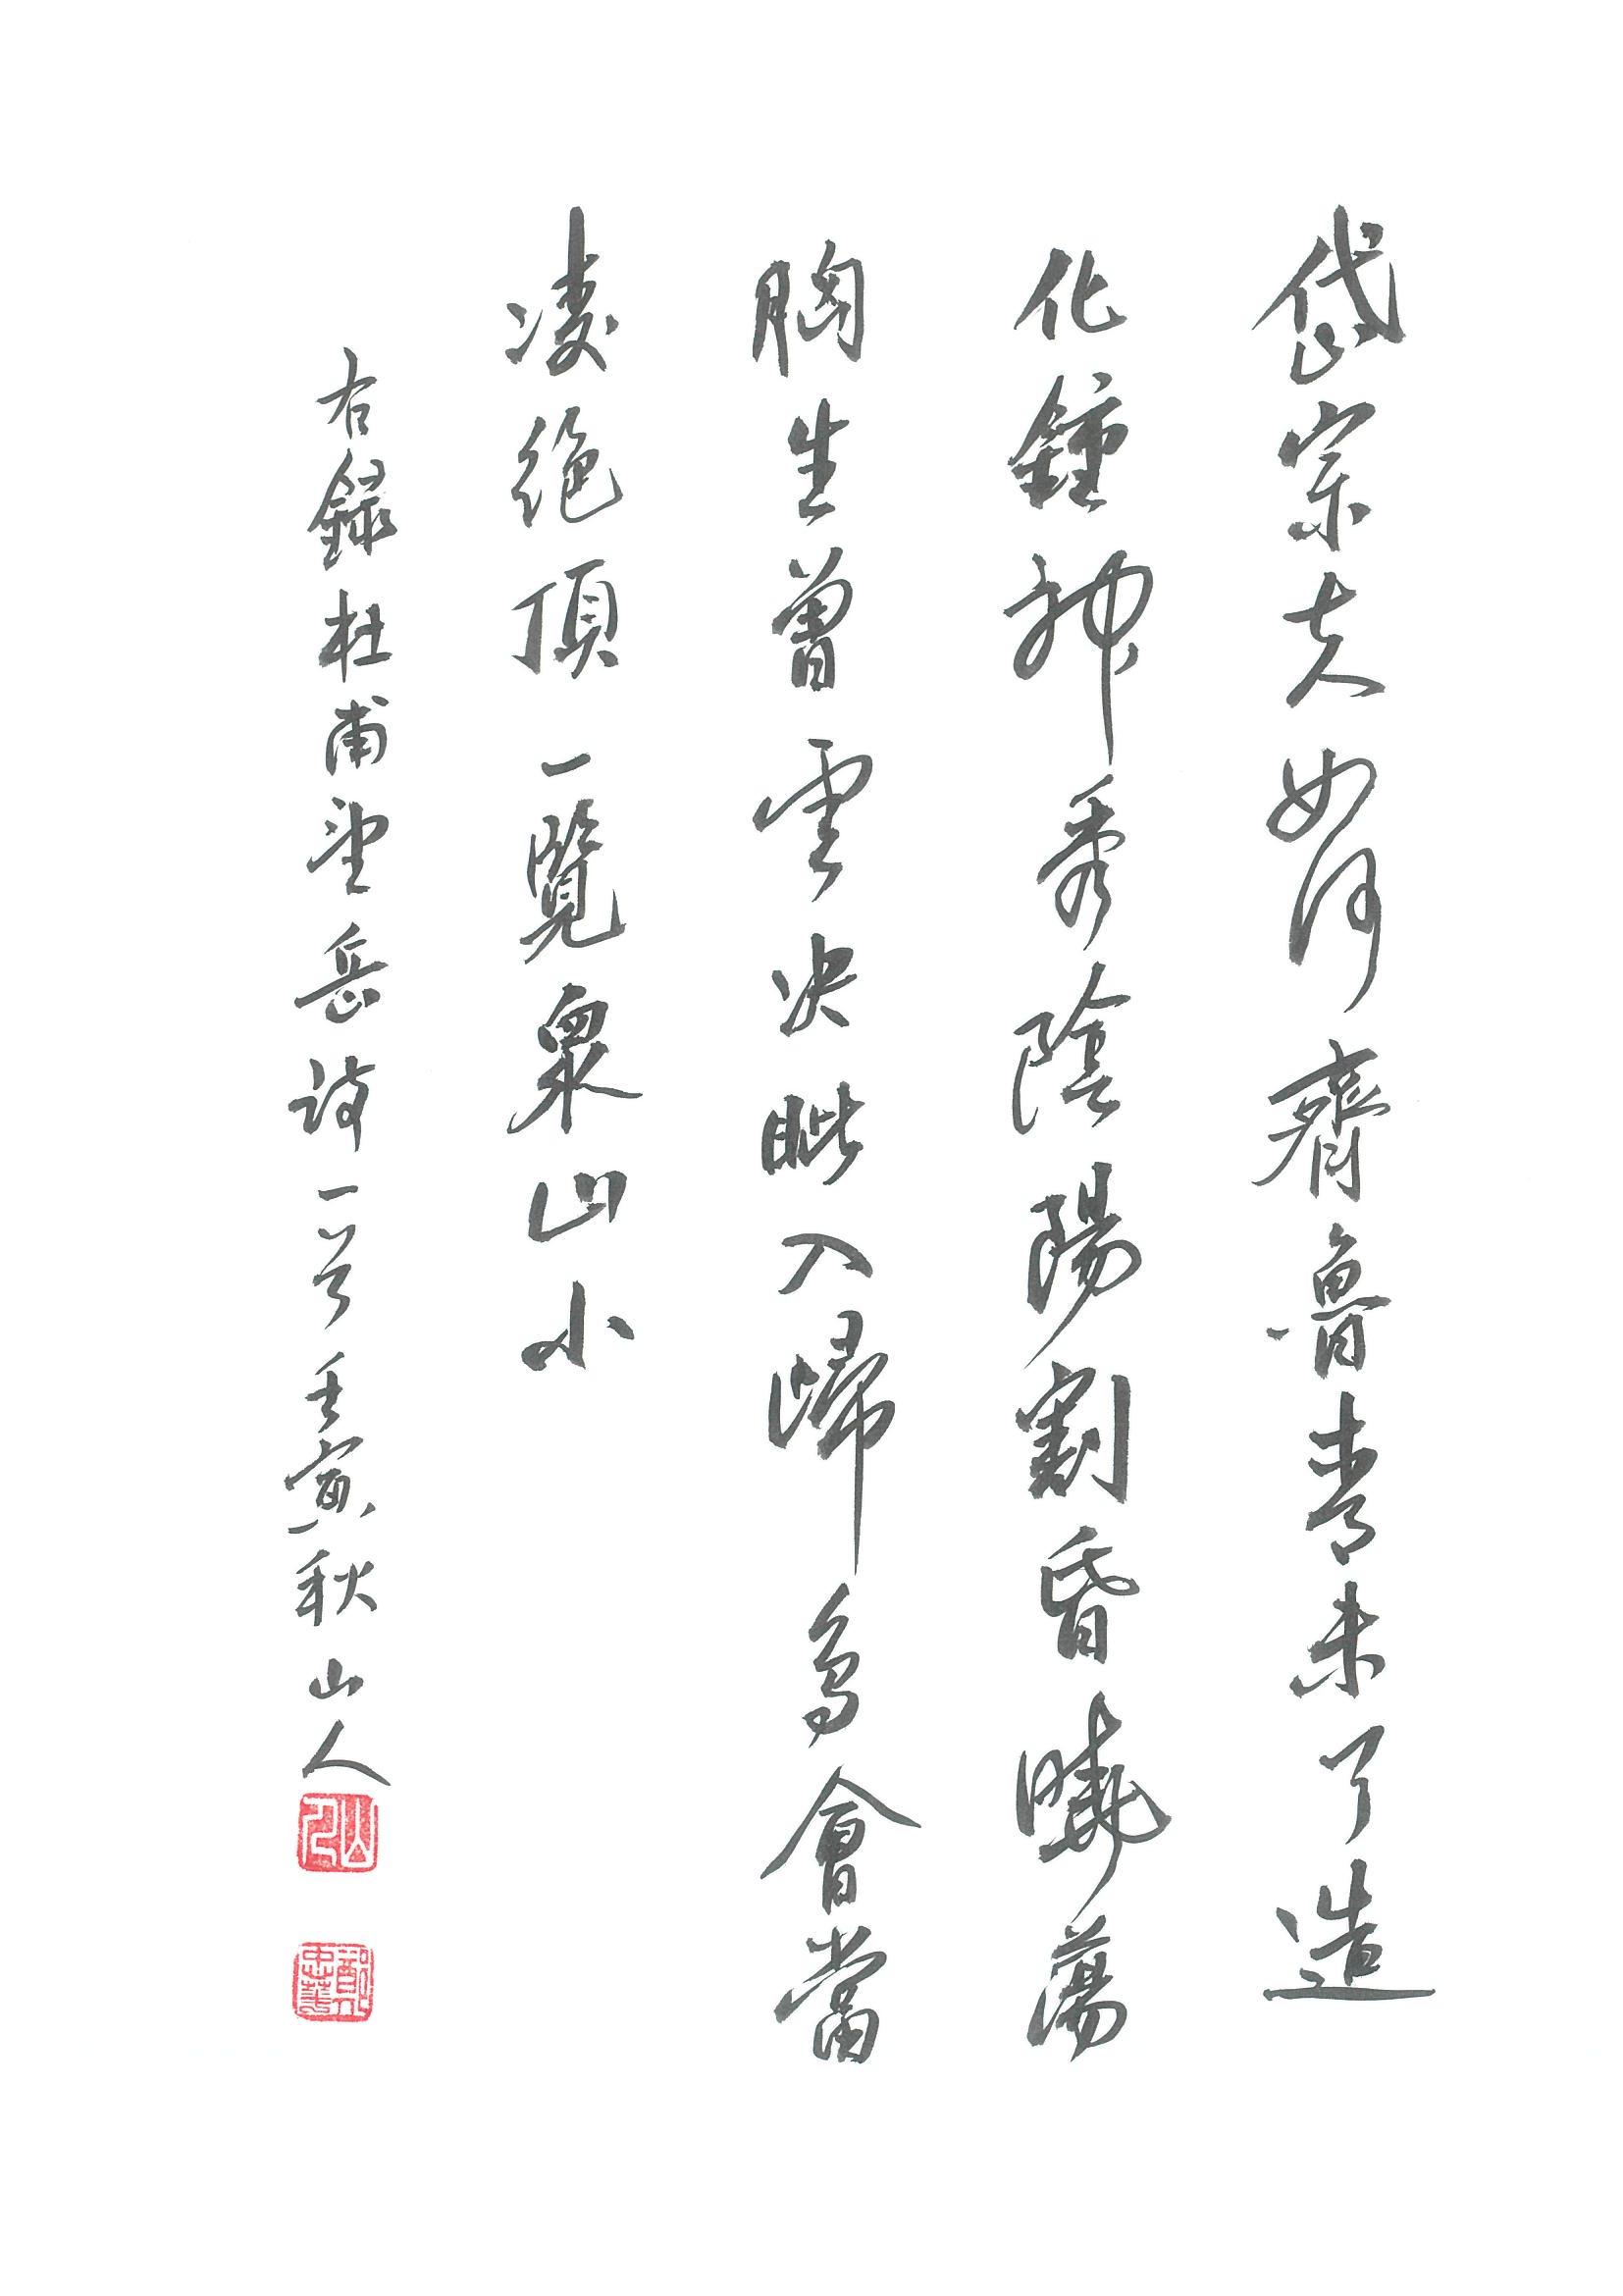 岱宗夫如何齊魯青未了造
化鍾神秀陰陽割昏曉蕩
胸生曾雲決眥入歸鳥會當
凌絕頂一覽衆山小
右録杜甫望岳詩一首壬寅秋山人
山人
鄭忠華